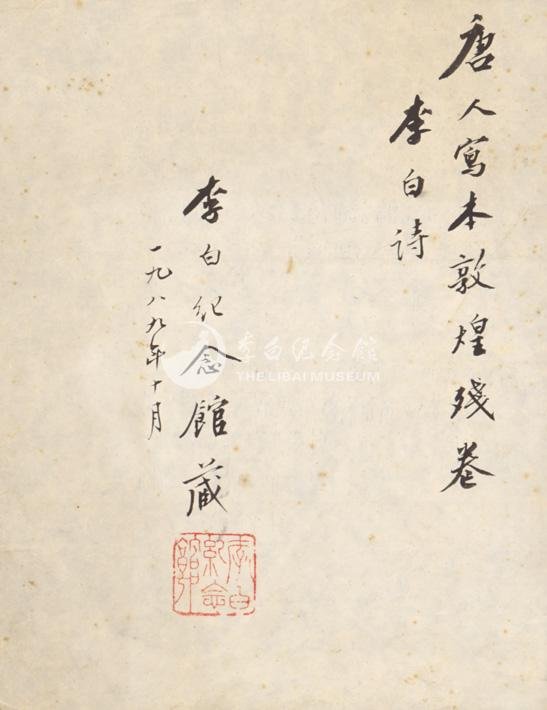 唐人寫本敦煌殘卷
李白诗
李白纪念館藏
一九八九年十月
李白紀念館印
李白纪念館
THE LIBAI MUSEUM